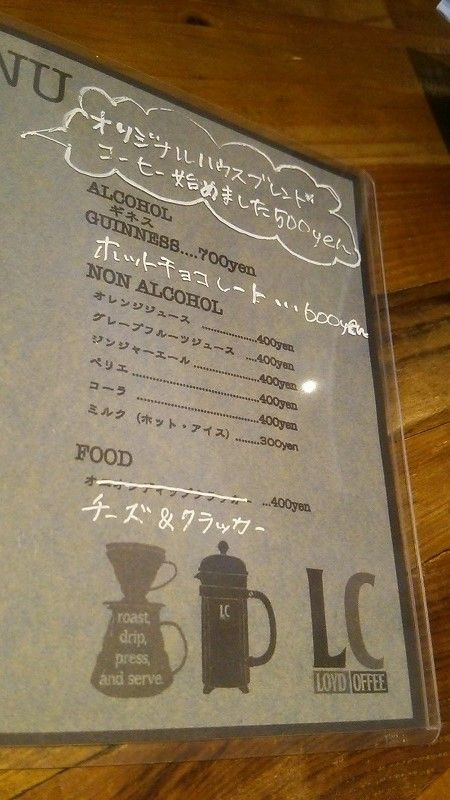 NU
オリジナルハウスブレンド
コーヒー始めました500yen
ALCOHOL
ギネス
GUINNESS....700yen
ホットチョコレート...600yen
NON ALCOHOL
オレンジジュース ..................400yen
グレープフルーツジュース ....400yen
ジンジャーエール..................400yen
ペリエ...................................400yen
コーラ ..................................400yen
ミルク (ホット・アイス).......300yen
FOOD
...400yen
チーズ&クラッカー
roast,
drip,
press,
and serve.
LC
LC
LOYD COFFEE